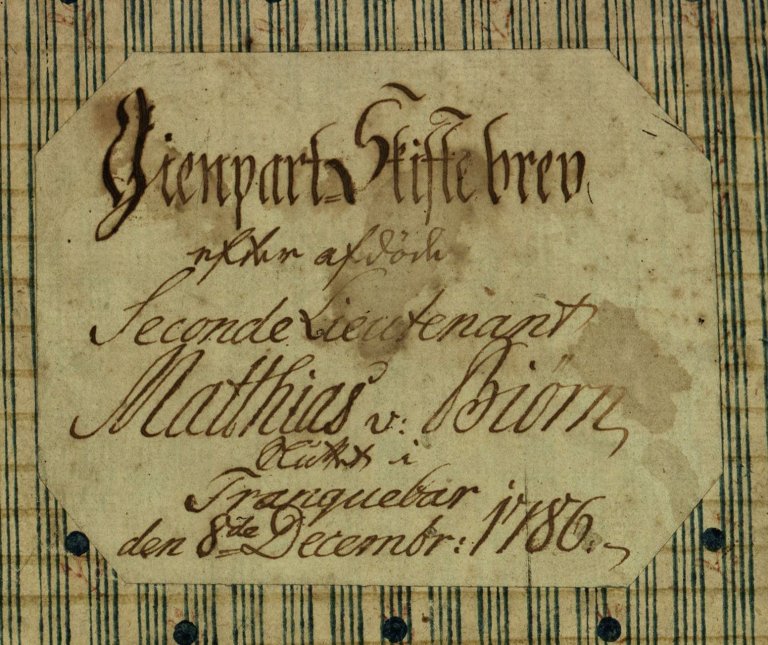 Gienpart-Skiftebrev
efter afdöde
Seconde Lieutenant
Matthias v: Biørn,
Sluttet i
Tranquebar
den 8de Decembr: 1786.